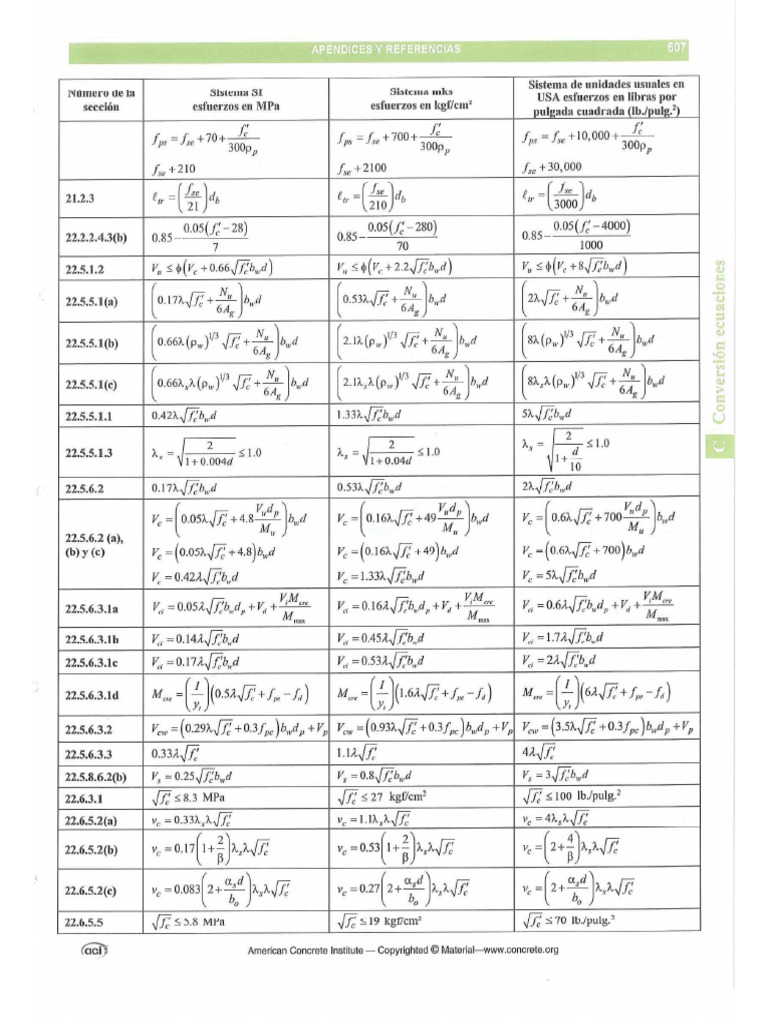 APÉNDICES Y REFERENCIAS 607
Número de la sección | Sistema SI esfuerzos en MPa | Sistema mks esfuerzos en kgf/cm² | Sistema de unidades usuales en USA esfuerzos en libras por pulgada cuadrada (lb./pulg.²)
f_ps = f_se + 70 + f′_c/(300ρ_p) | f_ps = f_se + 700 + f′_c/(300ρ_p) | f_ps = f_se + 10,000 + f′_c/(300ρ_p)
f_se + 210 | f_se + 2100 | f_se + 30,000
21.2.3 | ℓ_tr = (f_se/21)d_b | ℓ_tr = (f_se/210)d_b | ℓ_tr = (f_se/3000)d_b
22.2.2.4.3(b) | 0.85 − 0.05(f′_c − 28)/7 | 0.85 − 0.05(f′_c − 280)/70 | 0.85 − 0.05(f′_c − 4000)/1000
22.5.1.2 | V_u ≤ ϕ(V_c + 0.66√f′_c b_w d) | V_u ≤ ϕ(V_c + 2.2√f′_c b_w d) | V_u ≤ ϕ(V_c + 8√f′_c b_w d)
22.5.5.1(a) | (0.17λ√f′_c + N_u/6A_g)b_w d | (0.53λ√f′_c + N_u/6A_g)b_w d | (2λ√f′_c + N_u/6A_g)b_w d
22.5.5.1(b) | (0.66λ(ρ_w)^1/3 √f′_c + N_u/6A_g)b_w d | (2.1λ(ρ_w)^1/3 √f′_c + N_u/6A_g)b_w d | (8λ(ρ_w)^1/3 √f′_c + N_u/6A_g)b_w d
22.5.5.1(c) | (0.66λ_sλ(ρ_w)^1/3 √f′_c + N_u/6A_g)b_w d | (2.1λ_sλ(ρ_w)^1/3 √f′_c + N_u/6A_g)b_w d | (8λ_sλ(ρ_w)^1/3 √f′_c + N_u/6A_g)b_w d
22.5.5.1.1 | 0.42λ√f′_c b_w d | 1.33λ√f′_c b_w d | 5λ√f′_c b_w d
22.5.5.1.3 | λ_s = √(2/(1+0.004d)) ≤ 1.0 | λ_s = √(2/(1+0.04d)) ≤ 1.0 | λ_s = √(2/(1+d/10)) ≤ 1.0
22.5.6.2 | 0.17λ√f′_c b_w d | 0.53λ√f′_c b_w d | 2λ√f′_c b_w d
22.5.6.2 (a), (b) y (c) | V_c = (0.05λ√f′_c + 4.8 V_u d_p/M_u)b_w d | V_c = (0.16λ√f′_c + 49 V_u d_p/M_u)b_w d | V_c = (0.6λ√f′_c + 700 V_u d_p/M_u)b_w d
V_c = (0.05λ√f′_c + 4.8)b_w d | V_c = (0.16λ√f′_c + 49)b_w d | V_c = (0.6λ√f′_c + 700)b_w d
V_c = 0.42λ√f′_c b_w d | V_c = 1.33λ√f′_c b_w d | V_c = 5λ√f′_c b_w d
22.5.6.3.1a | V_ci = 0.05λ√f′_c b_w d_p + V_d + V_i M_cre/M_max | V_ci = 0.16λ√f′_c b_w d_p + V_d + V_i M_cre/M_max | V_ci = 0.6λ√f′_c b_w d_p + V_d + V_i M_cre/M_max
22.5.6.3.1b | V_ci = 0.14λ√f′_c b_w d | V_ci = 0.45λ√f′_c b_w d | V_ci = 1.7λ√f′_c b_w d
22.5.6.3.1c | V_ci = 0.17λ√f′_c b_w d | V_ci = 0.53λ√f′_c b_w d | V_ci = 2λ√f′_c b_w d
22.5.6.3.1d | M_cre = (I/y_t)(0.5λ√f′_c + f_pe − f_d) | M_cre = (I/y_t)(1.6λ√f′_c + f_pe − f_d) | M_cre = (I/y_t)(6λ√f′_c + f_pe − f_d)
22.5.6.3.2 | V_cw = (0.29λ√f′_c + 0.3f_pc)b_w d_p + V_p | V_cw = (0.93λ√f′_c + 0.3f_pc)b_w d_p + V_p | V_cw = (3.5λ√f′_c + 0.3f_pc)b_w d_p + V_p
22.5.6.3.3 | 0.33λ√f′_c | 1.1λ√f′_c | 4λ√f′_c
22.5.8.6.2(b) | V_s = 0.25√f′_c b_w d | V_s = 0.8√f′_c b_w d | V_s = 3√f′_c b_w d
22.6.3.1 | √f′_c ≤ 8.3 MPa | √f′_c ≤ 27 kgf/cm² | √f′_c ≤ 100 lb./pulg.²
22.6.5.2(a) | v_c = 0.33λ_sλ√f′_c | v_c = 1.1λ_sλ√f′_c | v_c = 4λ_sλ√f′_c
22.6.5.2(b) | v_c = 0.17(1 + 2/β)λ_sλ√f′_c | v_c = 0.53(1 + 2/β)λ_sλ√f′_c | v_c = (2 + 4/β)λ_sλ√f′_c
22.6.5.2(c) | v_c = 0.083(2 + α_s d/b_o)λ_sλ√f′_c | v_c = 0.27(2 + α_s d/b_o)λ_sλ√f′_c | v_c = (2 + α_s d/b_o)λ_sλ√f′_c
22.6.5.5 | √f′_c ≤ 5.8 MPa | √f′_c ≤ 19 kgf/cm² | √f′_c ≤ 70 lb./pulg.³
C Conversión ecuaciones
aci American Concrete Institute — Copyrighted © Material—www.concrete.org